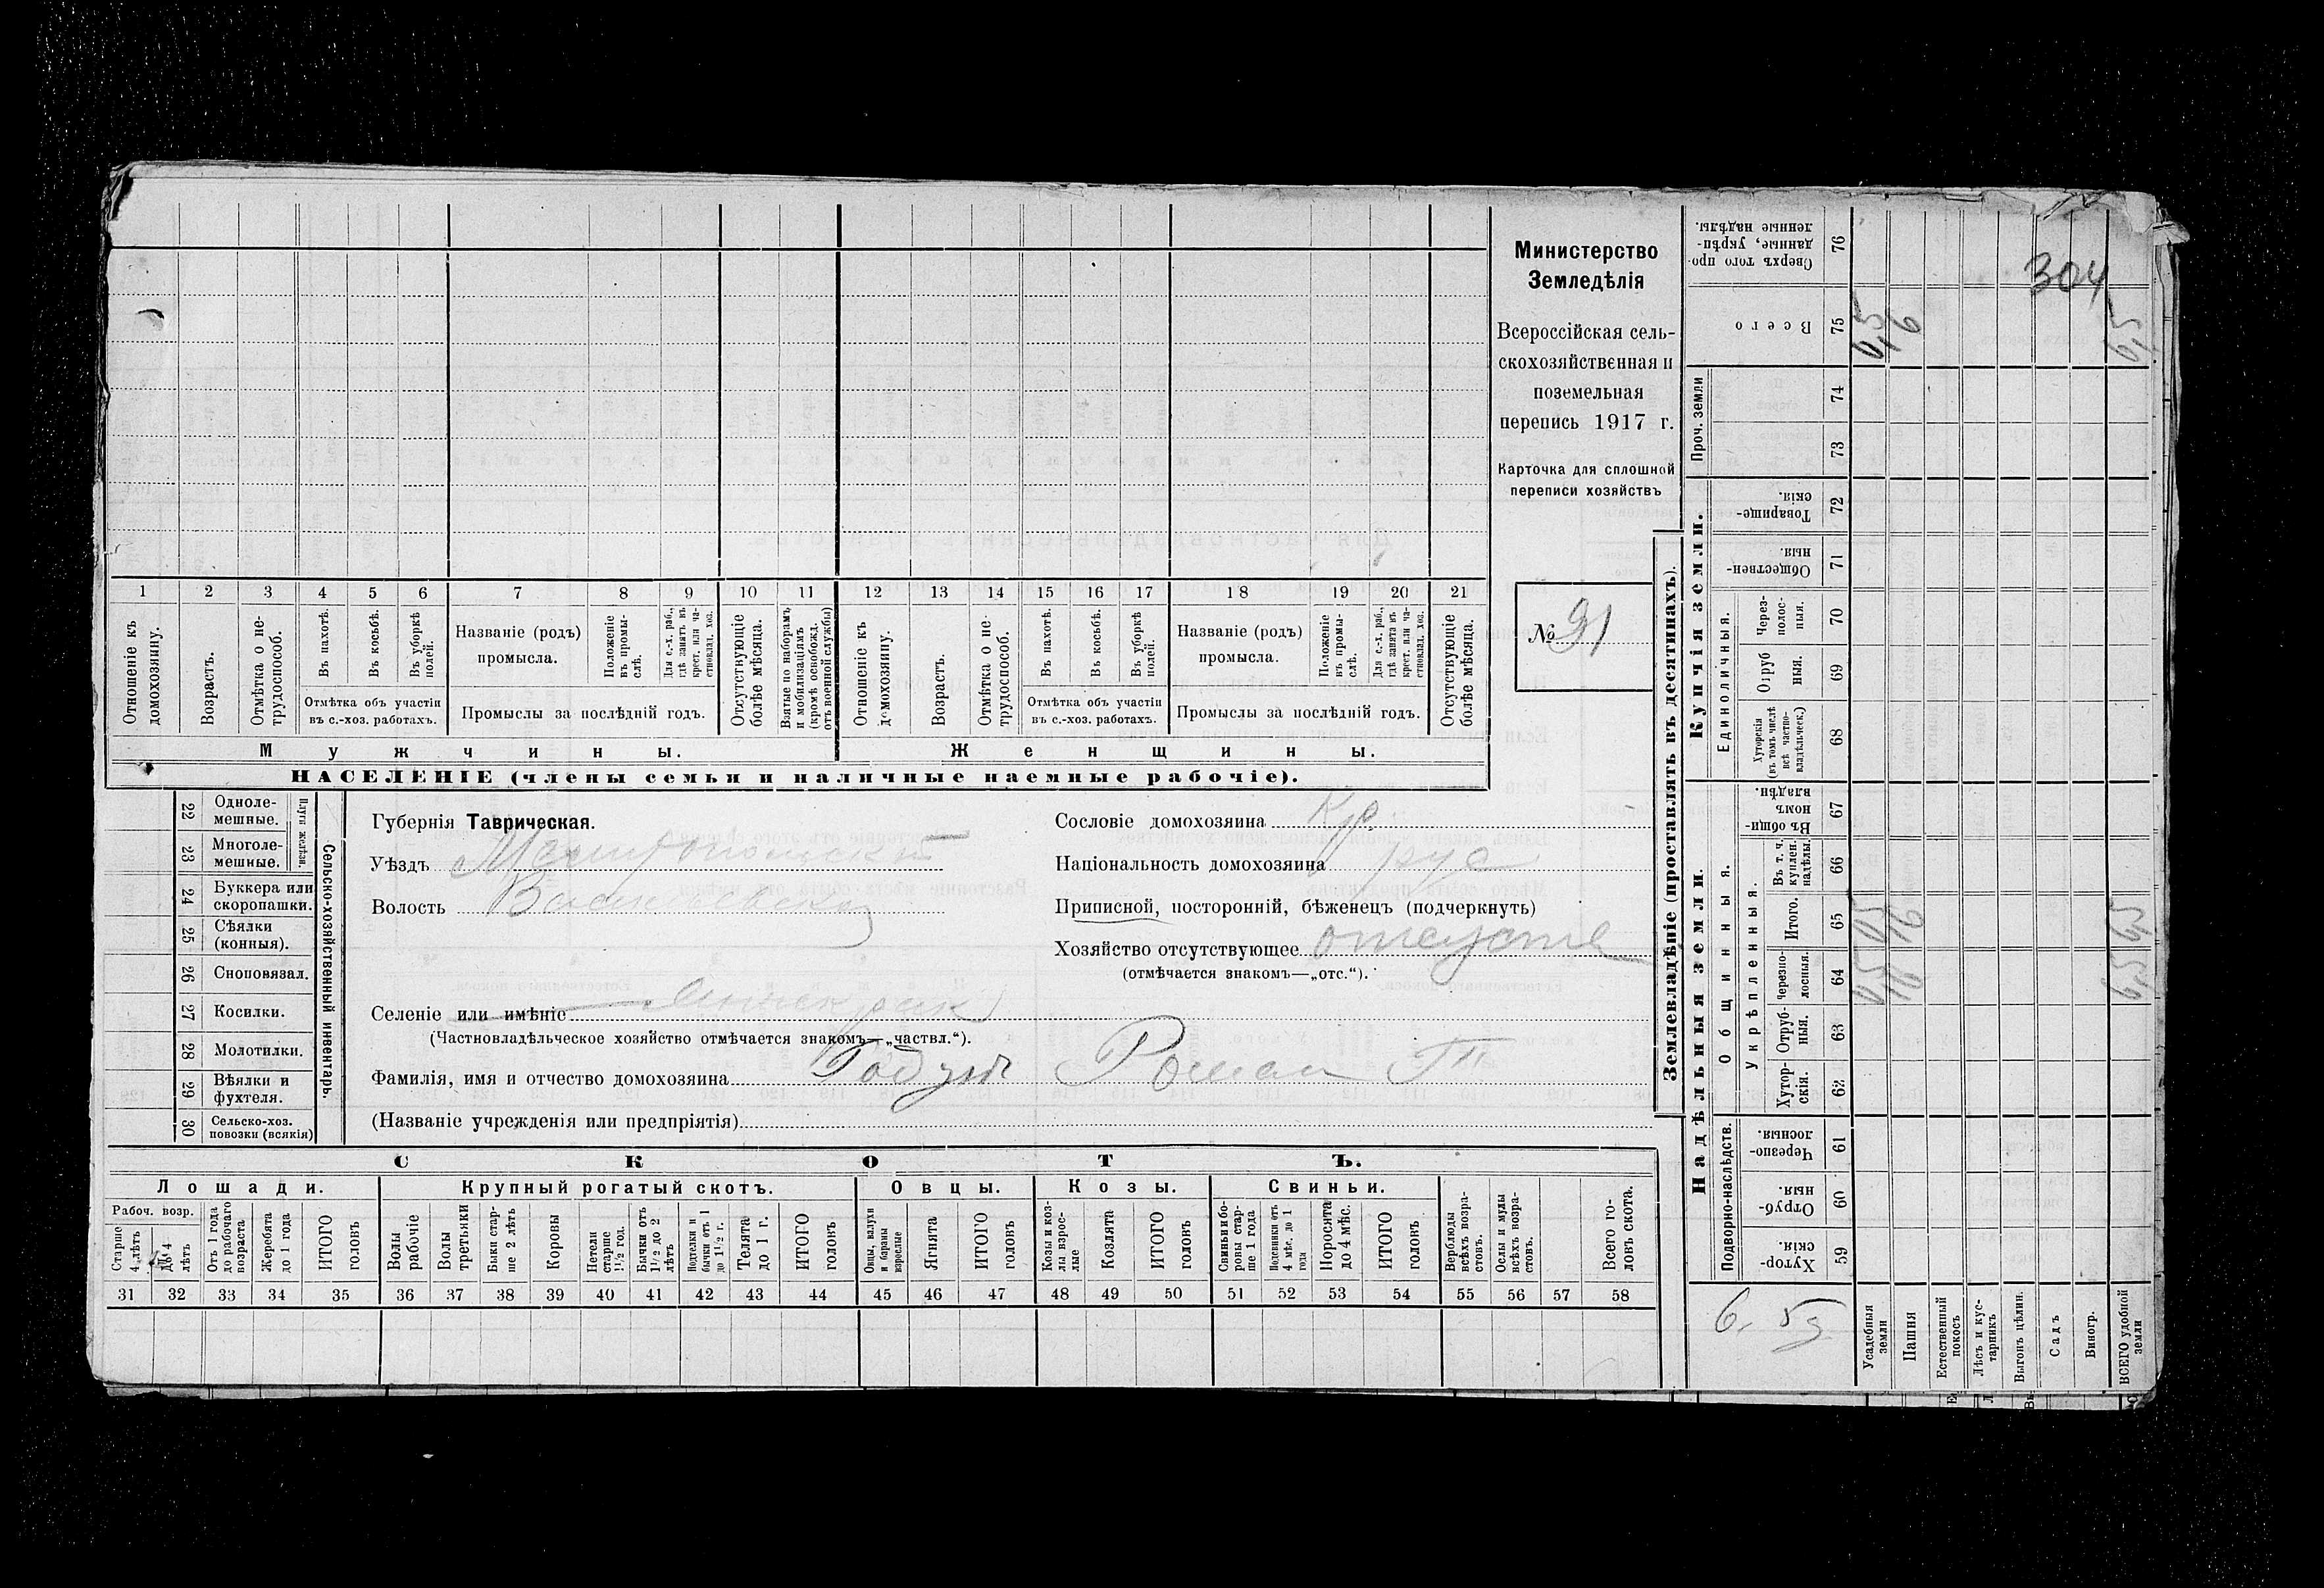 304
Министерство
Земледѣлія
Всероссійская сель-
скохозяйственная и
поземельная
перепись 1917 г.
Карточка для сплошной
переписи хозяйствъ
№ 31
1 2 3 4 5 6 7 8 9 10 11 12 13 14 15 16 17 18 19 20 21
Отношеніе къ домохозяину.
Возрастъ.
Отмѣтка о не-трудоспособ.
Въ пахотѣ.
Въ косьбѣ.
Въ уборкѣ полей.
Отмѣтка объ участіи
въ с.-хоз. работахъ.
Названіе (родъ)
промысла.
Положеніе въ промы-слѣ.
Для с.-х. раб., гдѣ занятъ въ крест. или ча-стновлад. хоз.
Промыслы за послѣдній годъ.
Отсутствующіе болѣе мѣсяца.
Взятые по наборамъ и мобилизаціямъ (кромѣ освобожд. отъ военной службы)
Отношеніе къ домохозяину.
Возрастъ.
Отмѣтка о не-трудоспособ.
Въ пахотѣ.
Въ косьбѣ.
Въ уборкѣ полей.
Отмѣтка объ участіи
въ с.-хоз. работахъ.
Названіе (родъ)
промысла.
Положеніе въ промы-слѣ.
Для с.-х. раб., гдѣ занята въ крест. или ча-стновлад. хоз.
Промыслы за послѣдній годъ.
Отсутствующіе болѣе мѣсяца.
Мужчины.
Женщины.
НАСЕЛЕНІЕ (члены семьи и наличные наемные рабочіе).
22 Одноле-мешные.
23 Многоле-мешные.
Плуги желѣзн.
24 Буккера или скоропашки.
25 Сѣялки (конныя).
26 Сноповязал.
27 Косилки.
28 Молотилки.
29 Вѣялки и фухтеля.
30 Сельско-хоз. повозки (всякія)
Сельско-хозяйственный инвентарь.
Губернія Таврическая.
Уѣздъ Мелитопольскій
Волость Васильевская
Сословіе домохозяина Кр.
Національность домохозяина рус
Приписной, посторонній, бѣженецъ (подчеркнуть)
Хозяйство отсутствующее отсутств
(отмѣчается знакомъ—„отс.“).
Селеніе или имѣніе
(Частновладѣльческое хозяйство отмѣчается знакомъ—„частвл.“).
Фамилія, имя и отчество домохозяина Годун Роман Т
(Названіе учрежденія или предпріятія)
СКОТЪ.
Лошади.
Крупный рогатый скотъ.
Овцы.
Козы.
Свиньи.
Рабоч. возр.
Старше 4 лѣтъ
До 4 лѣтъ
Отъ 1 года до рабочаго возраста
Жеребята до 1 года
ИТОГО головъ
Волы рабочіе
Волы третьяки
Быки стар-ше 2 лѣтъ
Коровы
Нетели старше 1½ год.
Бычки отъ 1½ до 2 лѣтъ
Подтелки и бычки отъ 1 до 1½ г.
Телята до 1 г.
ИТОГО головъ
Овцы, валухи и бараны взрослые
Ягнята
ИТОГО головъ
Козы и коз-лы взрос-лые
Козлята
ИТОГО головъ
Свиньи и бо-ровы стар-ше 1 года
Подсвинки отъ 4 мѣс. до 1 года
Поросята до 4 мѣс.
ИТОГО головъ
Верблюды всѣхъ возра-стовъ.
Ослы и мулы всѣхъ возра-стовъ.
Всего го-ловъ скота.
31 32 33 34 35 36 37 38 39 40 41 42 43 44 45 46 47 48 49 50 51 52 53 54 55 56 57 58
Землевладѣніе (проставлять въ десятинахъ).
Надѣльныя земли.
Купчія земли.
Проч. земли
Подворно-наслѣдств.
Общинныя.
Укрѣпленныя.
Единоличныя.
Сверхъ того про-данные, укрѣп-ленные надѣлы. 76
Всего 75
74
73
Товарище-скія. 72
Обществен-ныя. 71
Через-полос-ныя. 70
Отруб ныя. 69
Хуторскія (въ томъ числѣ всѣ частно-владѣльческ.) 68
Въ общи-номъ владѣн. 67
Въ т. ч. куплен. надѣлы. 66
Итого. 65
черезпо-лосныя. 64
Отруб-ныя. 63
Хутор-скія. 62
Черезпо-лосныя. 61
Отруб-ныя 60
Хутор-скія. 59
Усадебныя земли
Пашня
Естественный покосъ
Лѣсъ и кус-тарникъ
Выгонъ цѣлин.
Садъ
Виногр.
ВСЕГО удобной земли